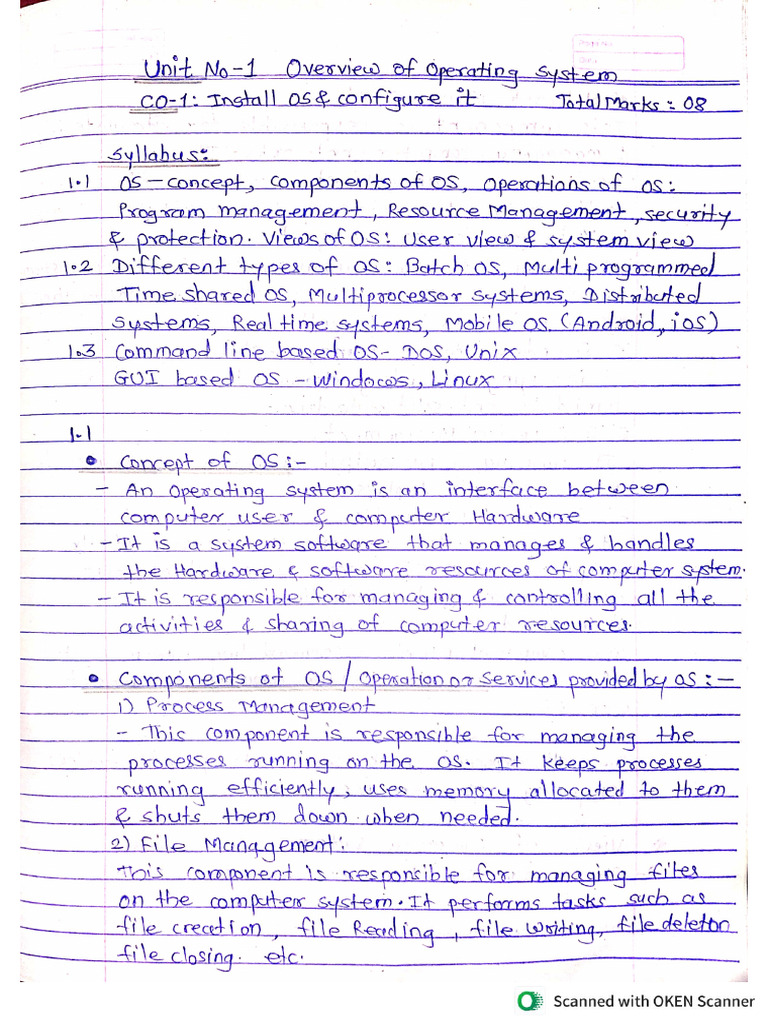 Unit No-1 Overview of Operating System
CO-1: Install OS & configure it Total Marks: 08
Syllabus:
1.1 OS - concept, components of OS, operations of OS:
Program management, Resource Management, security
& protection. Views of OS: User view & system view
1.2 Different types of OS: Batch OS, Multi programmed
Time shared OS, Multiprocessor systems, Distributed
systems, Real time systems, Mobile OS. (Android, iOS)
1.3 Command line based OS- DOS, Unix
GUI based OS - Windows, Linux
1.1
• Concept of OS :-
- An Operating system is an interface between
computer user & computer Hardware
- It is a system software that manages & handles
the Hardware & software resources of computer system.
- It is responsible for managing & controlling all the
activities & sharing of computer resources.
• Components of OS / Operation or Services provided by OS :-
1) Process Management
- This component is responsible for managing the
processes running on the OS. It keeps processes
running efficiently, uses memory allocated to them
& shuts them down when needed.
2) File Management:
This component is responsible for managing files
on the computer system. It performs tasks such as
file creation, file Reading, file writing, file deletion
file closing. etc.
Scanned with OKEN Scanner